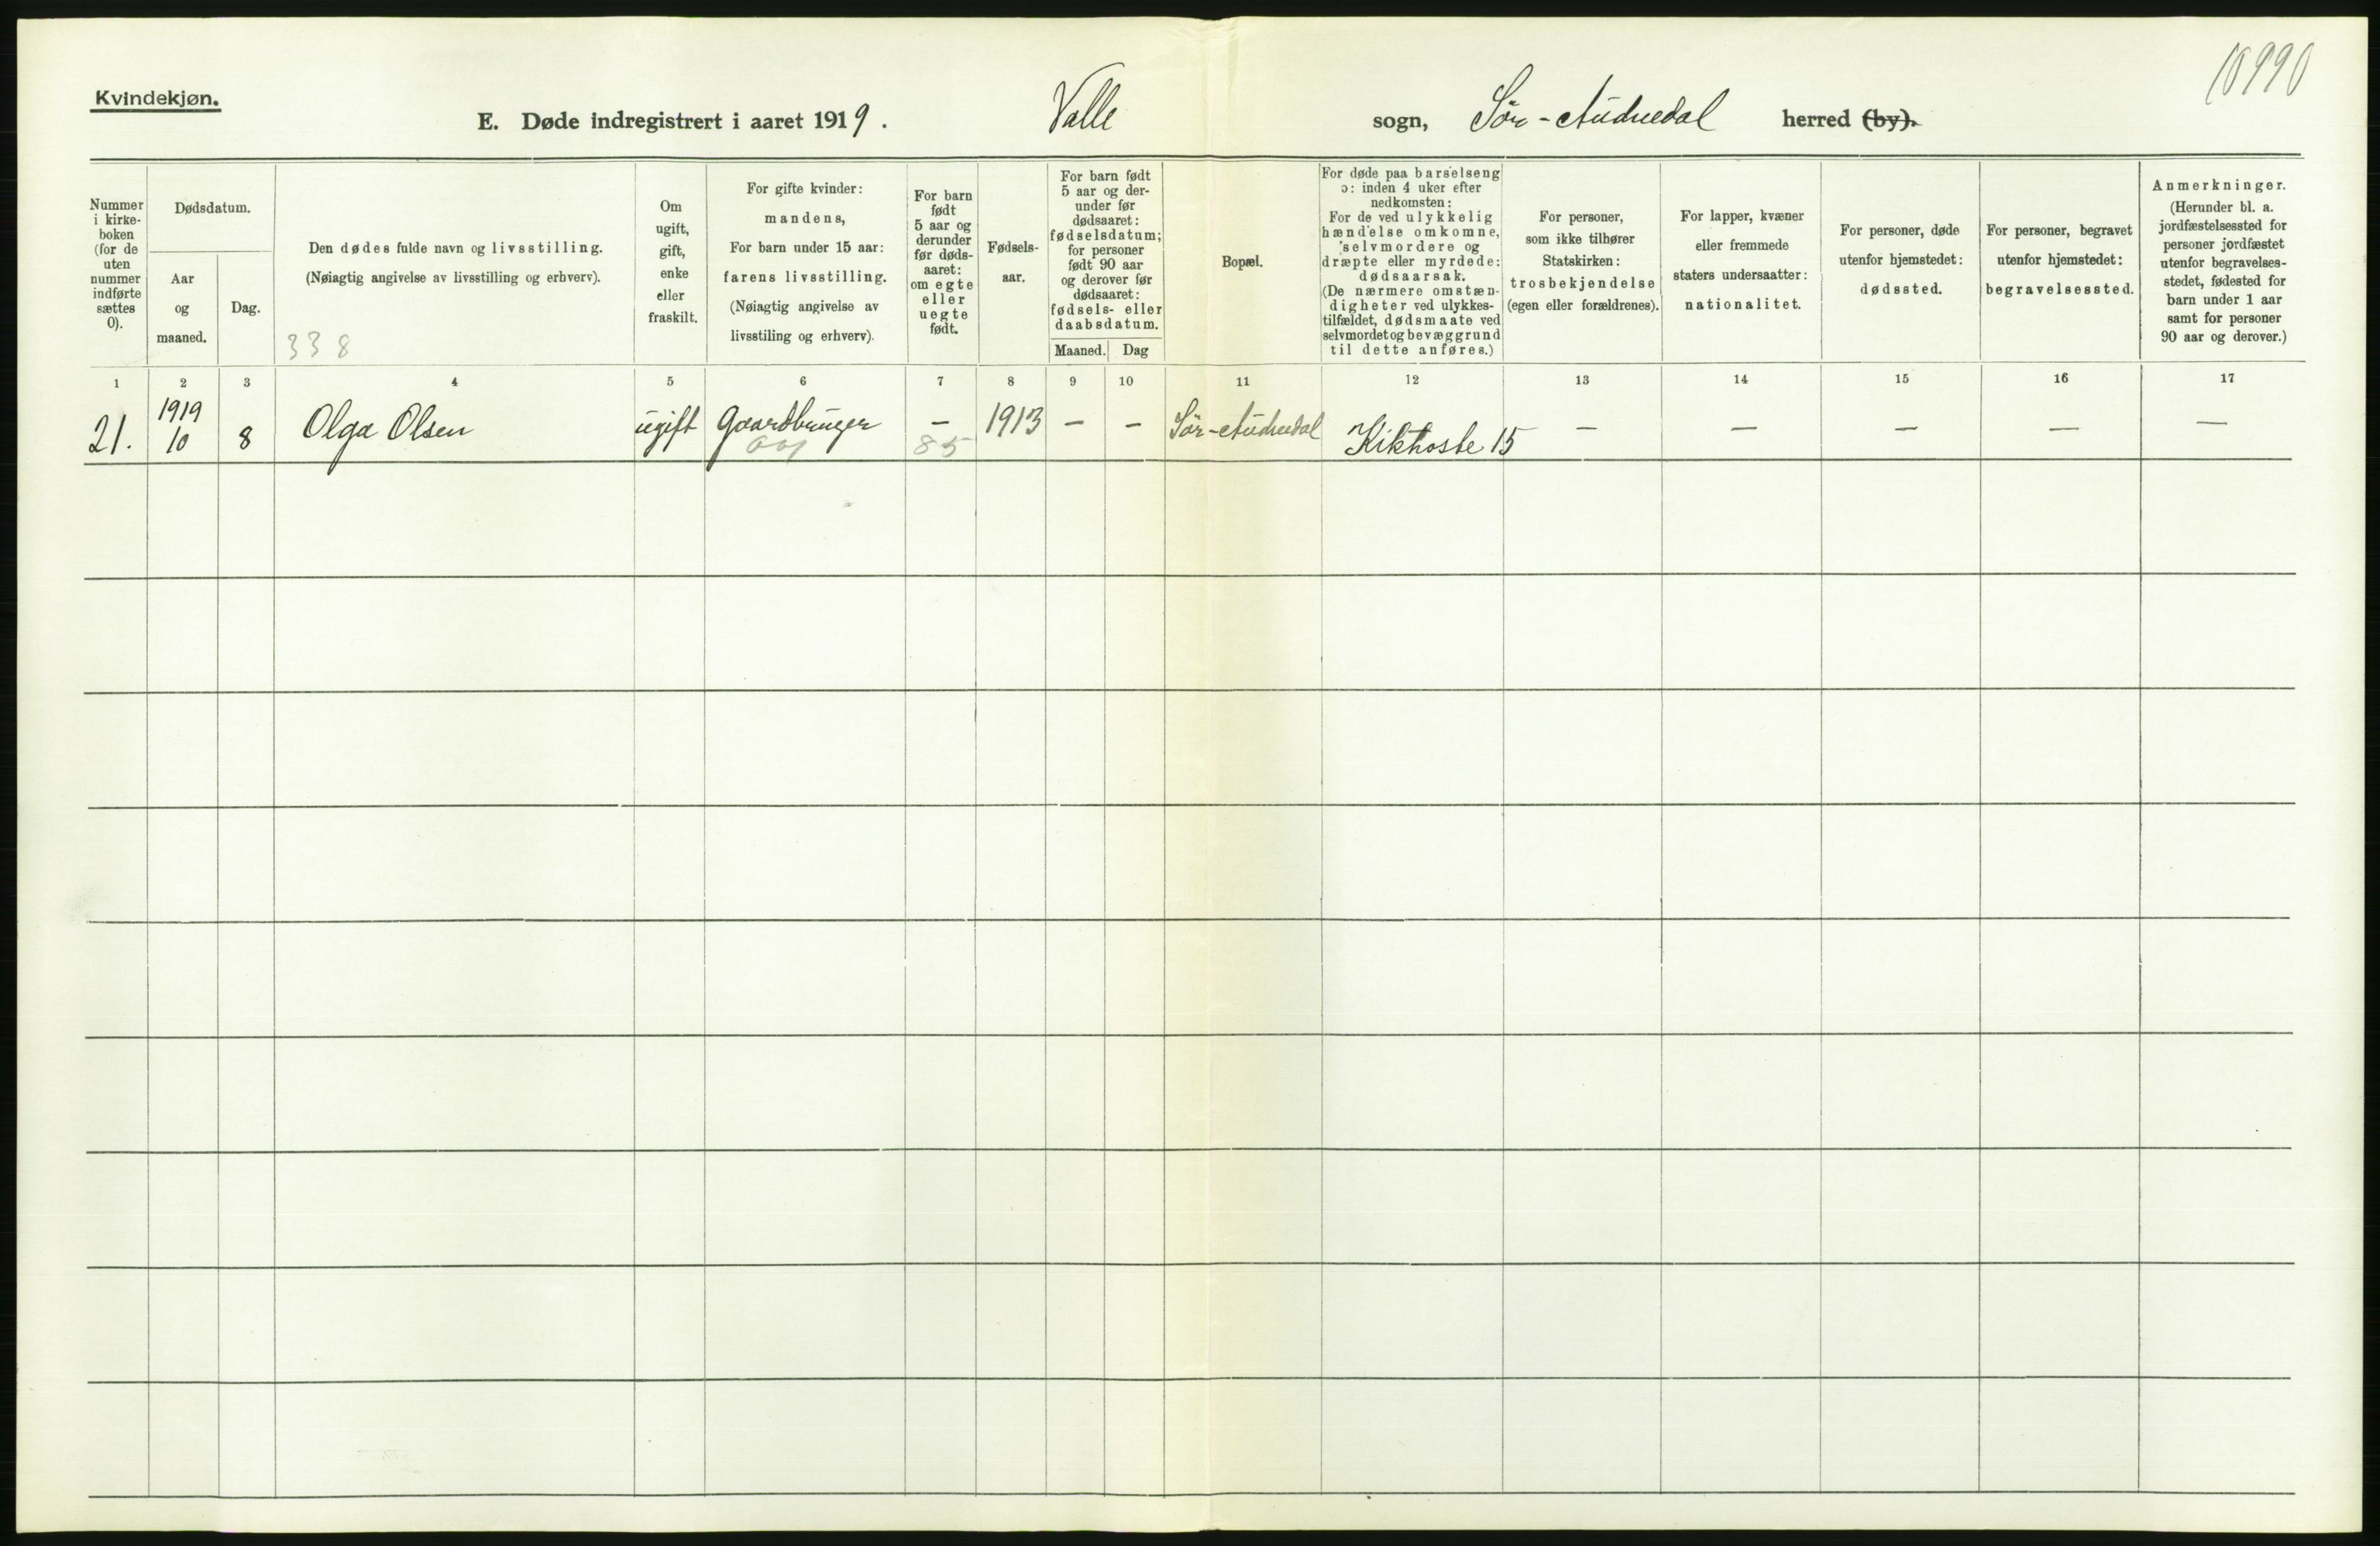 10990
Kvindekjøn.
E. Døde indregistrert i aaret 1919. Valle sogn, Sör-Audnedal herred (by).
Nummer
i kirke-
boken
(for de
uten
nummer
indførte
sættes
0).
Dødsdatum.
Aar
og
maaned.
Dag.
Den dødes fulde navn og livsstilling.
(Nøiagtig angivelse av livsstilling og erhverv).
338
Om
ugift,
gift,
enke
eller
fraskilt.
For gifte kvinder:
mandens,
For barn under 15 aar:
farens livsstilling.
(Nøiagtig angivelse av
livsstiling og erhverv).
For barn
født
5 aar og
derunder
før døds-
aaret:
om egte
eller
uegte
født.
Fødsels-
aar.
For barn født
5 aar og der-
under før
dødsaaret:
fødselsdatum;
for personer
født 90 aar
og derover før
dødsaaret:
fødsels- eller
daabsdatum.
Maaned. Dag
Bopæl.
For døde paa barselseng
ɔ: inden 4 uker efter
nedkomsten:
For de ved ulykkelig
hændelse omkomne,
selvmordere og
dræpte eller myrdede:
dødsaarsak.
(De nærmere omstæn-
digheter ved ulykkes-
tilfældet, dødsmaate ved
selvmordet og bevæggrund
til dette anføres.)
For personer,
som ikke tilhører
Statskirken:
trosbekjendelse
(egen eller forældrenes).
For lapper, kvæner
eller fremmede
staters undersaatter:
nationalitet.
For personer, døde
utenfor hjemstedet:
dødssted.
For personer, begravet
utenfor hjemstedet:
begravelsessted.
Anmerkninger.
(Herunder bl. a.
jordfæstelsessted for
personer jordfæstet
utenfor begravelses-
stedet, fødested for
barn under 1 aar
samt for personer
90 aar og derover.)
1 2 3 4 5 6 7 8 9 10 11 12 13 14 15 16 17
1919
21. 10 8 Olga Olsen ugift Gaardbruger — 1913 — — Sör-Audnedal Kikhoste 15 — — — — —
85